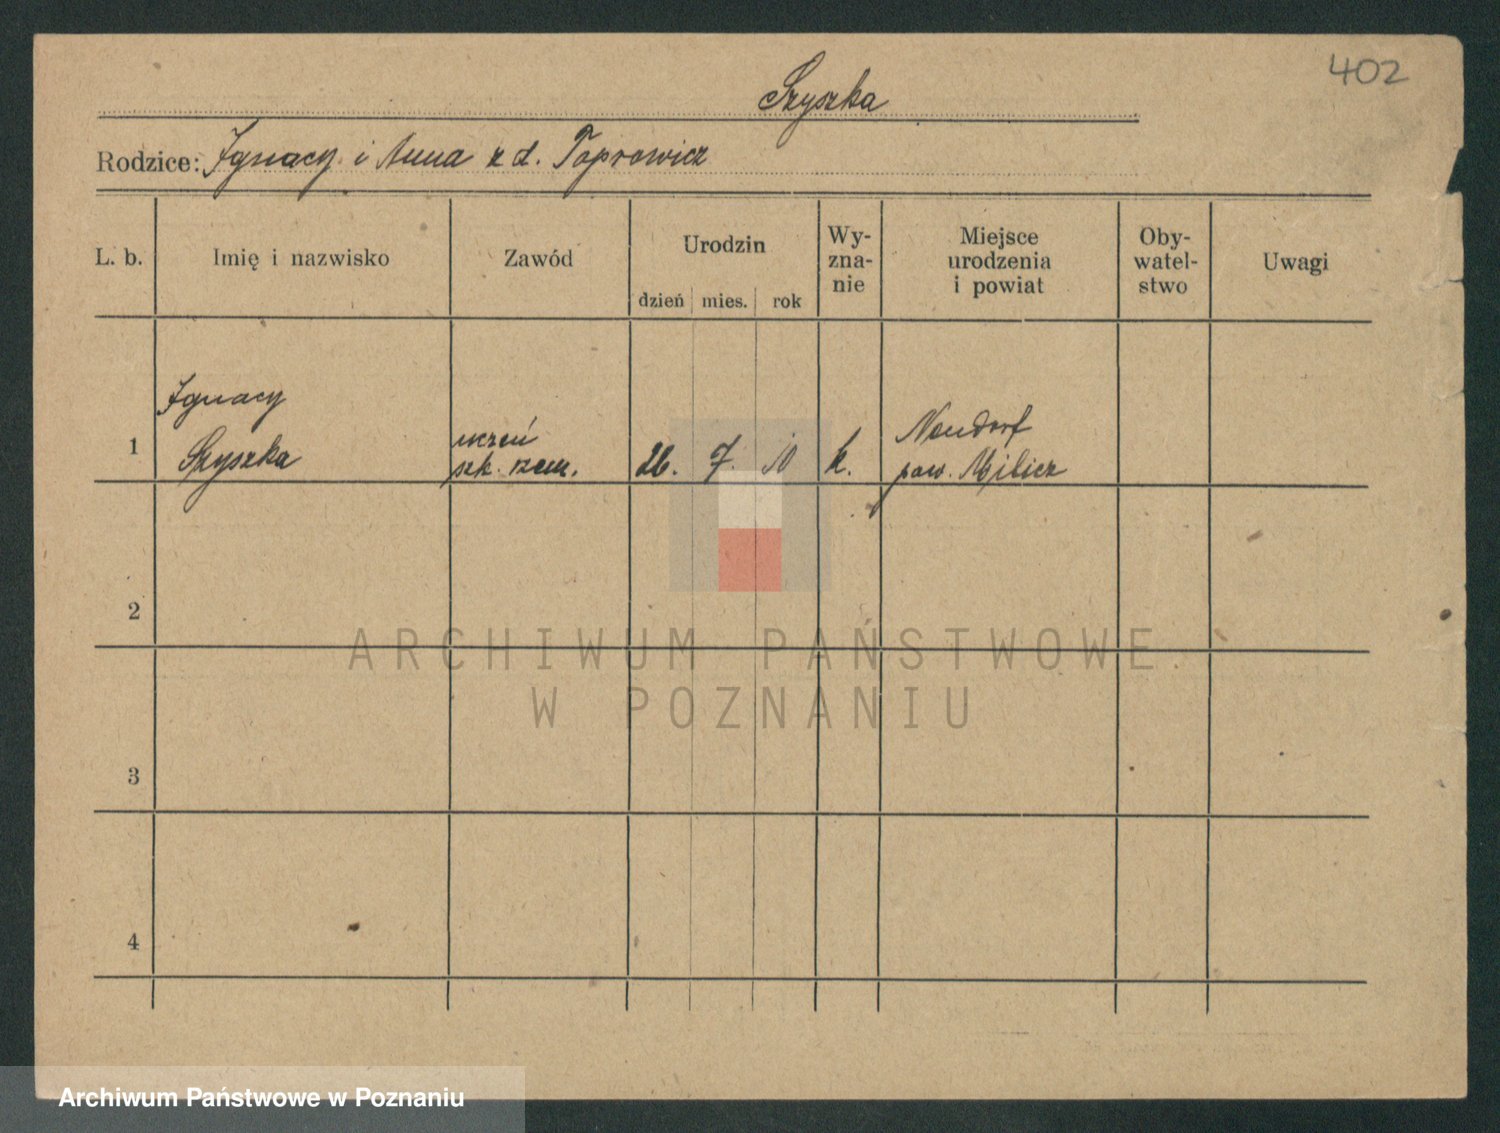 402
Szyszka
Rodzice: Ignacy i Anna z d. Toprowicz
L. b.
Imię i nazwisko
Zawód
Urodzin
dzień mies. rok
Wy-
zna-
nie
Miejsce
urodzenia
i powiat
Oby-
watel-
stwo
Uwagi
1
Ignacy
Szyszka
uczeń
szk. rzem.
26. 7. 10
k.
Neudorf
pow. Milicz
2
3
4
ARCHIWUM PAŃSTWOWE
W POZNANIU
Archiwum Państwowe w Poznaniu